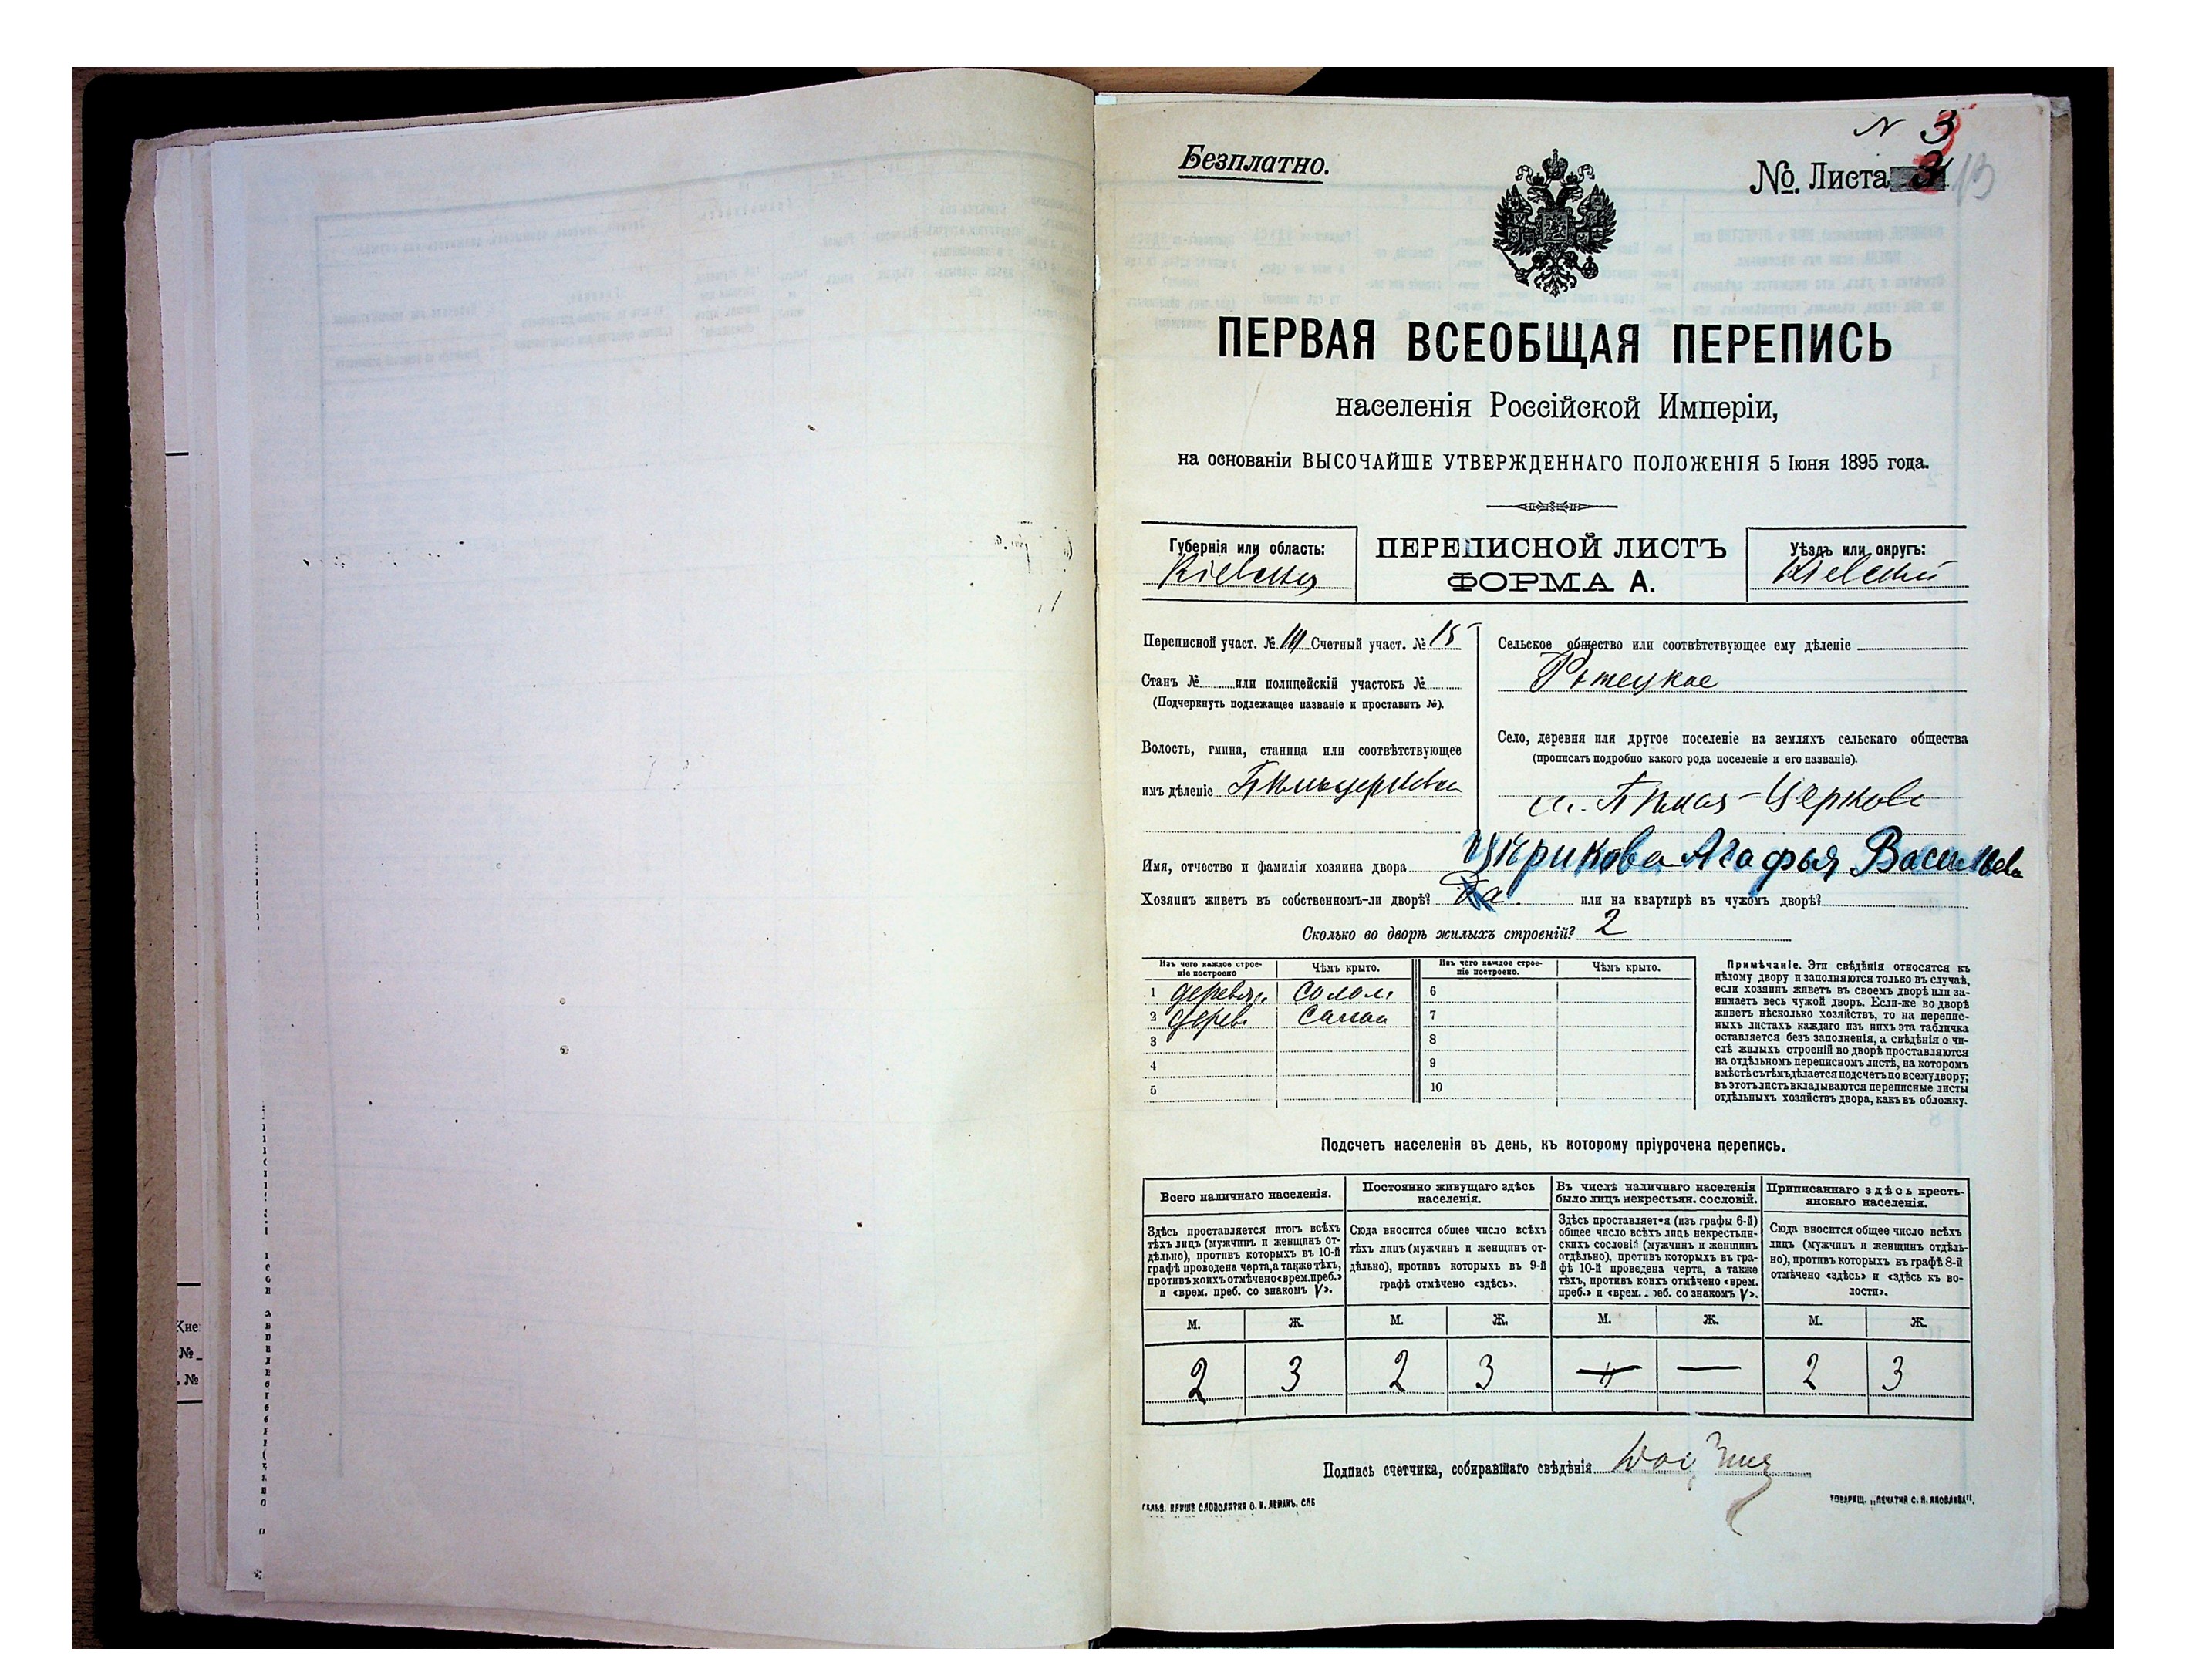 N 3
Безплатно.
№. Листа 3 13
ПЕРВАЯ ВСЕОБЩАЯ ПЕРЕПИСЬ
населенія Россійской Имперіи,
на основаніи ВЫСОЧАЙШЕ УТВЕРЖДЕННАГО ПОЛОЖЕНІЯ 5 Іюня 1895 года.
Губернія или область:
Кіевская
ПЕРЕПИСНОЙ ЛИСТЪ
ФОРМА А.
Уѣздъ или округъ:
Кіевскій
Переписной участ. № III Счетный участ. № 15
Станъ № или полицейскій участокъ №
(Подчеркнуть подлежащее названіе и проставить №).
Волость, гмина, станица или соотвѣтствующее
имъ дѣленіе
Сельское общество или соотвѣтствующее ему дѣленіе
Село, деревня или другое поселеніе на земляхъ сельскаго общества
(прописать подробно какого рода поселеніе и его названіе).
Церковь
Имя, отчество и фамилія хозяина двора Цырикова Агафья Васильева
Хозяинъ живетъ въ собственномъ-ли дворѣ? Да или на квартирѣ въ чужомъ дворѣ?
Сколько во дворѣ жилыхъ строеній? 2
Изъ чего каждое строе-
ніе построено
Чѣмъ крыто.
1 деревян. солом
2 дерев солом
3
4
5
Изъ чего каждое строе-
ніе построено.
Чѣмъ крыто.
6
7
8
9
10
Примѣчаніе. Эти свѣдѣнія относятся къ
цѣлому двору и заполняются только въ случаѣ,
если хозяинъ живетъ въ своемъ дворѣ или за-
нимаетъ весь чужой дворъ. Если-же во дворѣ
живетъ нѣсколько хозяйствъ, то на перепис-
ныхъ листахъ каждаго изъ нихъ эта табличка
оставляется безъ заполненія, а свѣдѣнія о чи-
слѣ жилыхъ строеній во дворѣ проставляются
на отдѣльномъ переписномъ листѣ, на которомъ
вмѣстѣ съ тѣмъ дѣлается подсчетъ по всему двору;
въ этотъ листъ вкладываются переписные листы
отдѣльныхъ хозяйствъ двора, какъ въ обложку.
Подсчетъ населенія въ день, къ которому пріурочена перепись.
Всего наличнаго населенія.
Здѣсь проставляется итогъ всѣхъ
тѣхъ лицъ (мужчинъ и женщинъ от-
дѣльно), противъ которыхъ въ 10-й
графѣ проведена черта, а также тѣхъ,
противъ коихъ отмѣчено «врем. преб.»
и «врем. преб. со знакомъ V».
Постоянно живущаго здѣсь
населенія.
Сюда вносится общее число всѣхъ
тѣхъ лицъ (мужчинъ и женщинъ от-
дѣльно), противъ которыхъ въ 9-й
графѣ отмѣчено «здѣсь».
Въ числѣ наличнаго населенія
было лицъ некрестьян. сословій.
Здѣсь проставляется (изъ графы 6-й)
общее число всѣхъ лицъ некрестьян-
скихъ сословій (мужчинъ и женщинъ
отдѣльно), противъ которыхъ въ гра-
фѣ 10-й проведена черта, а также
тѣхъ, противъ коихъ отмѣчено «врем.
преб.» и «врем. преб. со знакомъ V».
Приписаннаго здѣсь кресть-
янскаго населенія.
Сюда вносится общее число всѣхъ
лицъ (мужчинъ и женщинъ отдѣль-
но), противъ которыхъ въ графѣ 8-й
отмѣчено «здѣсь» и «здѣсь къ во-
лости».
М. Ж. М. Ж. М. Ж. М. Ж.
2 3 2 3 — — 2 3
Подпись счетчика, собиравшаго свѣдѣнія
СЛОВОЛИТНИ О. И. ЛЕМАНЪ. СПБ
ТОВАРИЩ. „ПЕЧАТНЯ С. П. ЯКОВЛЕВА".